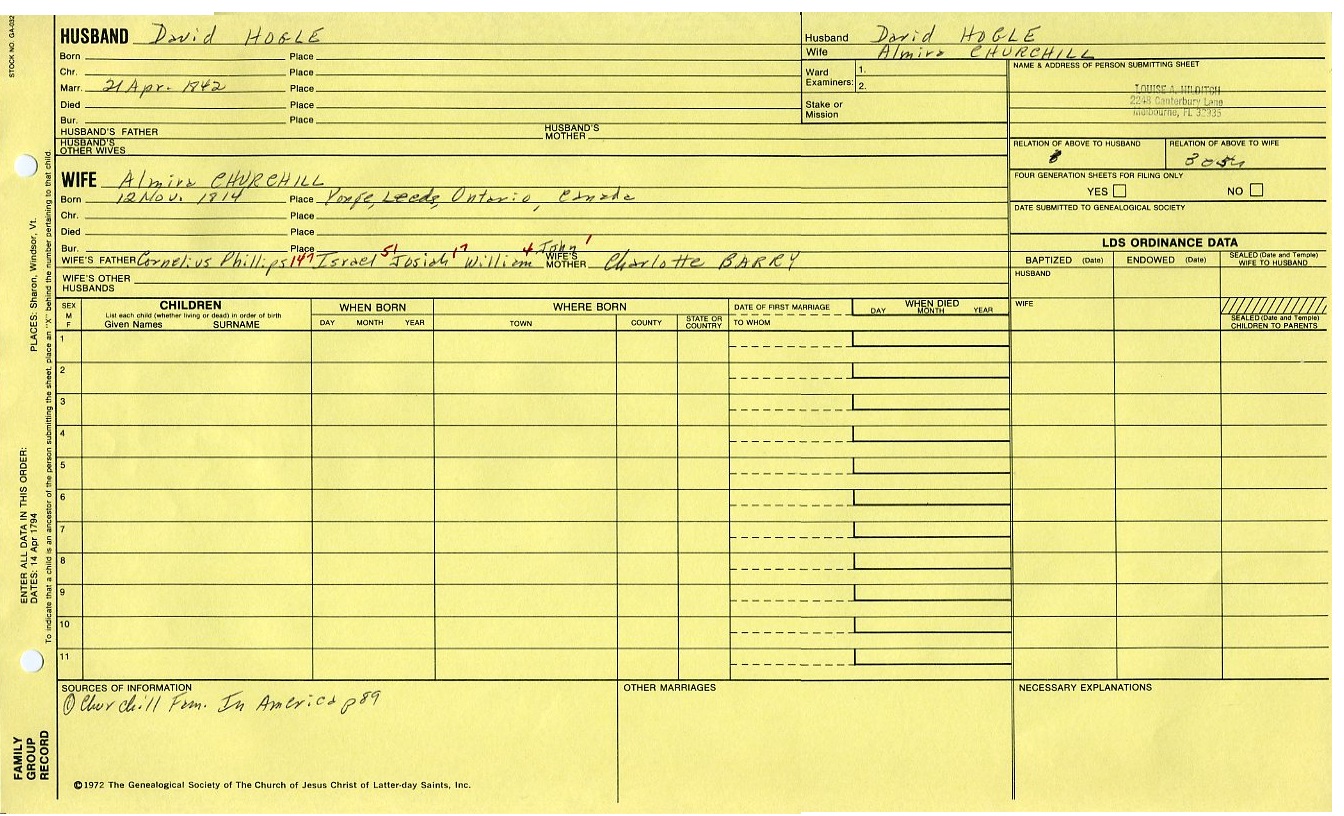 STOCK NO. GA-032
HUSBAND David HOGLE
Born Place
Chr. Place
Marr. 21 Apr. 1842 Place
Died Place
Bur. Place
HUSBAND'S FATHER HUSBAND'S MOTHER
HUSBAND'S OTHER WIVES
Husband David HOGLE
Wife Almira CHURCHILL
Ward Examiners: 1.
2.
Stake or Mission
NAME & ADDRESS OF PERSON SUBMITTING SHEET
LOUISE A. HILDITCH
2248 Canterbury Lane
Melbourne, FL 32935
RELATION OF ABOVE TO HUSBAND RELATION OF ABOVE TO WIFE
FOUR GENERATION SHEETS FOR FILING ONLY
YES NO
DATE SUBMITTED TO GENEALOGICAL SOCIETY
WIFE Almira CHURCHILL
Born 12 Nov. 1814 Place Yonge, Leeds, Ontario, Canada
Chr. Place
Died Place
Bur. Place
WIFE'S FATHER Cornelius Phillips 147 Israel 51 Josiah 17 William 4 John 1 WIFE'S MOTHER Charlotte BARRY
WIFE'S OTHER HUSBANDS
LDS ORDINANCE DATA
BAPTIZED (Date) ENDOWED (Date) SEALED (Date and Temple) WIFE TO HUSBAND
HUSBAND
WIFE
SEALED (Date and Temple) CHILDREN TO PARENTS
SEX M F
CHILDREN
List each child (whether living or dead) in order of birth
Given Names SURNAME
WHEN BORN
DAY MONTH YEAR
WHERE BORN
TOWN COUNTY STATE OR COUNTRY
DATE OF FIRST MARRIAGE
TO WHOM
WHEN DIED
DAY MONTH YEAR
1
2
3
4
5
6
7
8
9
10
11
SOURCES OF INFORMATION
① Churchill Fam. In America p89
OTHER MARRIAGES
NECESSARY EXPLANATIONS
©1972 The Genealogical Society of The Church of Jesus Christ of Latter-day Saints, Inc.
FAMILY GROUP RECORD
ENTER ALL DATA IN THIS ORDER:
DATES: 14 Apr 1794 PLACES: Sharon, Windsor, Vt.
To indicate that a child is an ancestor of the person submitting the sheet, place an "X" behind the number pertaining to that child.